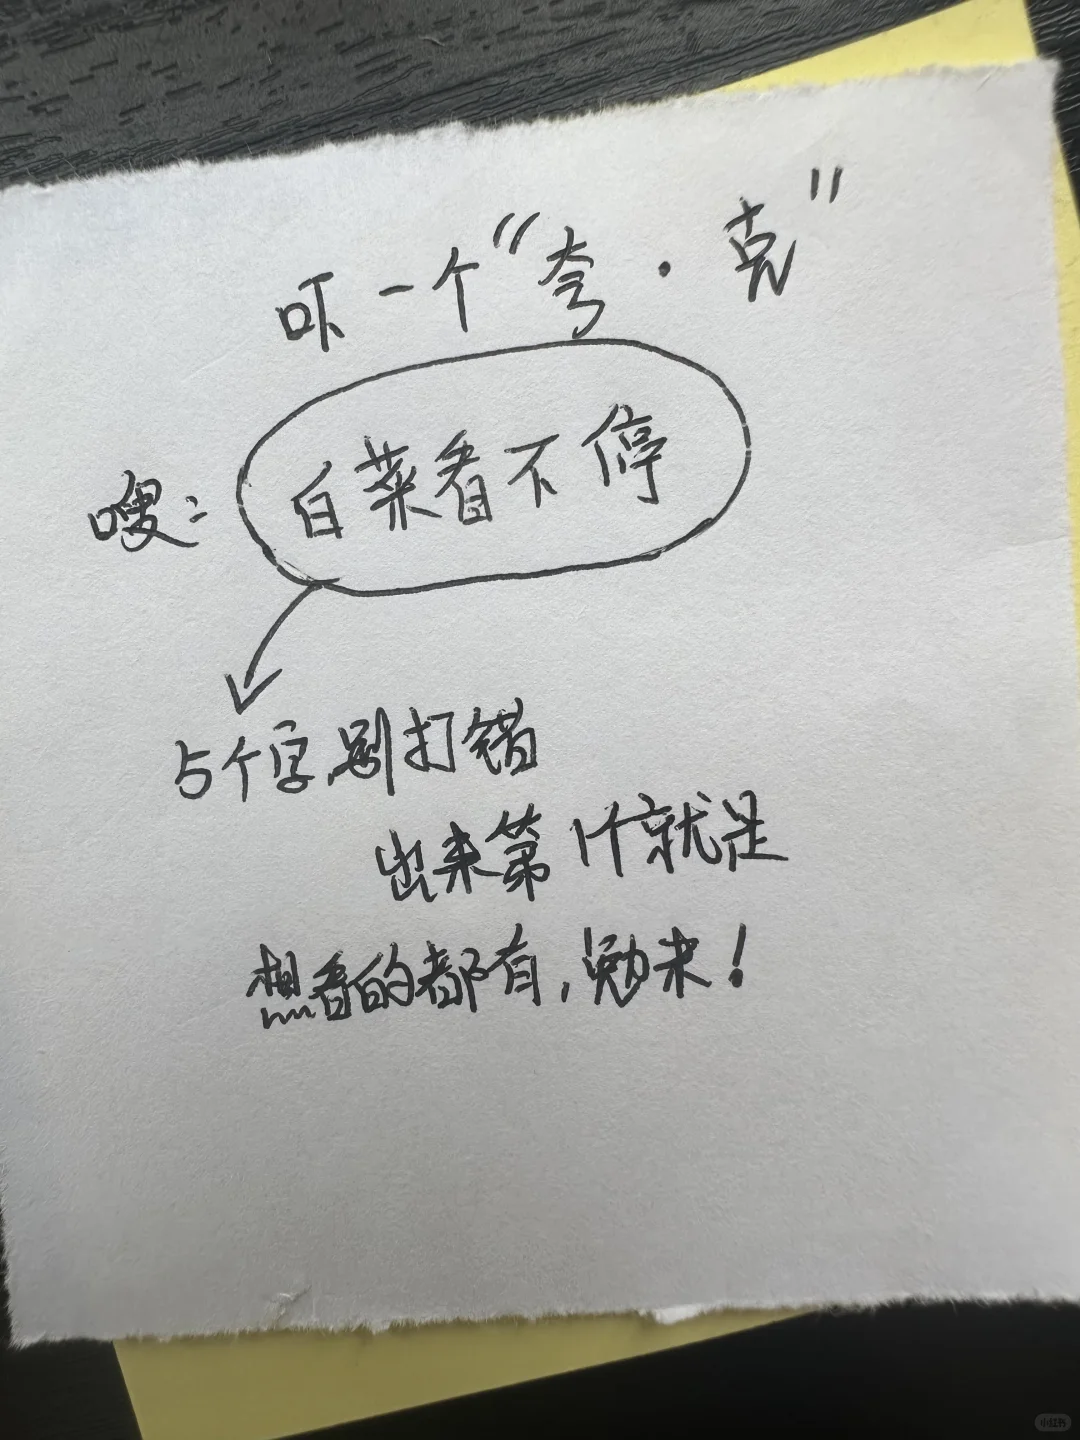 吓一个"夸·克"
嗖：白菜看不停
5个字,别打错
出来第1个就是
想看的都有,勉来!
小红书